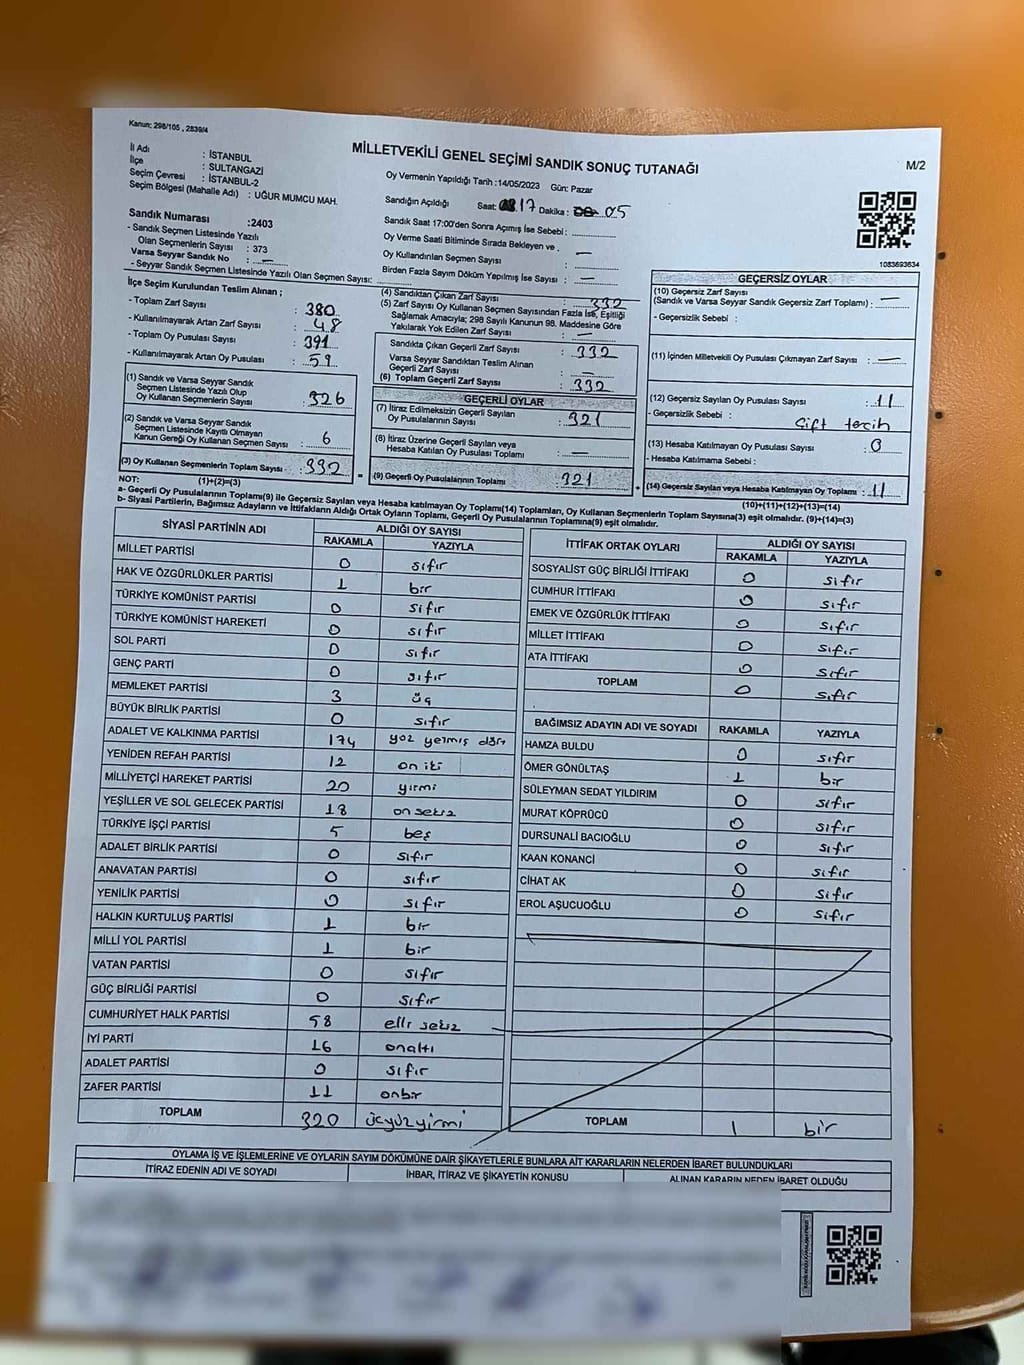 Kanun; 298/105 , 2839/4
MİLLETVEKİLİ GENEL SEÇİMİ SANDIK SONUÇ TUTANAĞI
M/2
İl Adı : İSTANBUL
İlçe : SULTANGAZİ
Seçim Çevresi : İSTANBUL-2
Seçim Bölgesi (Mahalle Adı) : UĞUR MUMCU MAH.
Oy Vermenin Yapıldığı Tarih :14/05/2023 Gün: Pazar
Sandığın Açıldığı Saat: 17 Dakika : 05
Sandık Saat 17:00'den Sonra Açımış İse Sebebi :
Oy Verme Saati Bitiminde Sırada Bekleyen ve
Oy Kullandırılan Seçmen Sayısı : —
Birden Fazla Sayım Döküm Yapılmış İse Sayısı : —
1083693634
Sandık Numarası :2403
- Sandık Seçmen Listesinde Yazılı
Olan Seçmenlerin Sayısı : 373
Varsa Seyyar Sandık No : —
- Seyyar Sandık Seçmen Listesinde Yazılı Olan Seçmen Sayısı:
İlçe Seçim Kurulundan Teslim Alınan ;
- Toplam Zarf Sayısı : 380
- Kullanılmayarak Artan Zarf Sayısı : 48
- Toplam Oy Pusulası Sayısı : 391
- Kullanılmayarak Artan Oy Pusulası : 59
(1) Sandık ve Varsa Seyyar Sandık
Seçmen Listesinde Yazılı Olup
Oy Kullanan Seçmenlerin Sayısı : 326
(2) Sandık ve Varsa Seyyar Sandık
Seçmen Listesinde Kayıtlı Olmayan
Kanun Gereği Oy Kullanan Seçmen Sayısı : 6
(3) Oy Kullanan Seçmenlerin Toplam Sayısı : 332
(4) Sandıktan Çıkan Zarf Sayısı : 332
(5) Zarf Sayısı Oy Kullanan Seçmen Sayısından Fazla İse, Eşitliği
Sağlamak Amacıyla; 298 Sayılı Kanunun 98. Maddesine Göre
Yakılarak Yok Edilen Zarf Sayısı : —
Sandıkta Çıkan Geçerli Zarf Sayısı : 332
Varsa Seyyar Sandıktan Teslim Alınan
Geçerli Zarf Sayısı : —
(6) Toplam Geçerli Zarf Sayısı : 332
GEÇERLİ OYLAR
(7) İtiraz Edilmeksizin Geçerli Sayılan
Oy Pusulalarının Sayısı : 321
(8) İtiraz Üzerine Geçerli Sayılan veya
Hesaba Katılan Oy Pusulası Toplamı : —
(9) Geçerli Oy Pusulalarının Toplamı : 321
GEÇERSİZ OYLAR
(10) Geçersiz Zarf Sayısı
(Sandık ve Varsa Seyyar Sandık Geçersiz Zarf Toplamı) : —
- Geçersizlik Sebebi :
(11) İçinden Milletvekili Oy Pusulası Çıkmayan Zarf Sayısı : —
(12) Geçersiz Sayılan Oy Pusulası Sayısı : 11
- Geçersizlik Sebebi : Çift tercih
(13) Hesaba Katılmayan Oy Pusulası Sayısı : 0
- Hesaba Katılmama Sebebi :
(14) Geçersiz Sayılan veya Hesaba Katılmayan Oy Toplamı : 11
NOT: (1)+(2)=(3)
(10)+(11)+(12)+(13)=(14)
a- Geçerli Oy Pusulalarının Toplamı(9) ile Geçersiz Sayılan veya Hesaba katılmayan Oy Toplamı(14) Toplamları, Oy Kullanan Seçmenlerin Toplam Sayısına(3) eşit olmalıdır. (9)+(14)=(3)
b- Siyasi Partilerin, Bağımsız Adayların ve İttifakların Aldığı Ortak Oyların Toplamı, Geçerli Oy Pusulalarının Toplamına(9) eşit olmalıdır.
SİYASİ PARTİNİN ADI ALDIĞI OY SAYISI
RAKAMLA YAZIYLA
MİLLET PARTİSİ 0 sıfır
HAK VE ÖZGÜRLÜKLER PARTİSİ 1 bir
TÜRKİYE KOMÜNİST PARTİSİ 0 sıfır
TÜRKİYE KOMÜNİST HAREKETİ 0 sıfır
SOL PARTİ 0 sıfır
GENÇ PARTİ 0 sıfır
MEMLEKET PARTİSİ 3 üç
BÜYÜK BİRLİK PARTİSİ 0 sıfır
ADALET VE KALKINMA PARTİSİ 174 yüz yetmiş dört
YENİDEN REFAH PARTİSİ 12 on iki
MİLLİYETÇİ HAREKET PARTİSİ 20 yirmi
YEŞİLLER VE SOL GELECEK PARTİSİ 18 on sekiz
TÜRKİYE İŞÇİ PARTİSİ 5 beş
ADALET BİRLİK PARTİSİ 0 sıfır
ANAVATAN PARTİSİ 0 sıfır
YENİLİK PARTİSİ 0 sıfır
HALKIN KURTULUŞ PARTİSİ 1 bir
MİLLİ YOL PARTİSİ 1 bir
VATAN PARTİSİ 0 sıfır
GÜÇ BİRLİĞİ PARTİSİ 0 sıfır
CUMHURİYET HALK PARTİSİ 58 elli sekiz
İYİ PARTİ 16 onaltı
ADALET PARTİSİ 0 sıfır
ZAFER PARTİSİ 11 onbir
TOPLAM 320 üçyüzyirmi
İTTİFAK ORTAK OYLARI ALDIĞI OY SAYISI
RAKAMLA YAZIYLA
SOSYALİST GÜÇ BİRLİĞİ İTTİFAKI 0 sıfır
CUMHUR İTTİFAKI 0 sıfır
EMEK VE ÖZGÜRLÜK İTTİFAKI 0 sıfır
MİLLET İTTİFAKI 0 sıfır
ATA İTTİFAKI 0 sıfır
TOPLAM 0 sıfır
BAĞIMSIZ ADAYIN ADI VE SOYADI RAKAMLA YAZIYLA
HAMZA BULDU 0 sıfır
ÖMER GÖNÜLTAŞ 1 bir
SÜLEYMAN SEDAT YILDIRIM 0 sıfır
MURAT KÖPRÜCÜ 0 sıfır
DURSUNALİ BACIOĞLU 0 sıfır
KAAN KONANCİ 0 sıfır
CİHAT AK 0 sıfır
EROL AŞUCUOĞLU 0 sıfır
TOPLAM 1 bir
OYLAMA İŞ VE İŞLEMLERİNE VE OYLARIN SAYIM DÖKÜMÜNE DAİR ŞİKAYETLERLE BUNLARA AİT KARARLARIN NELERDEN İBARET BULUNDUKLARI
İTİRAZ EDENİN ADI VE SOYADI İHBAR, İTİRAZ VE ŞİKAYETİN KONUSU ALINAN KARARIN NEDEN İBARET OLDUĞU